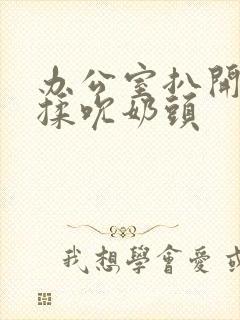 办公室扒開
揉吹奶頭
我想學會愛